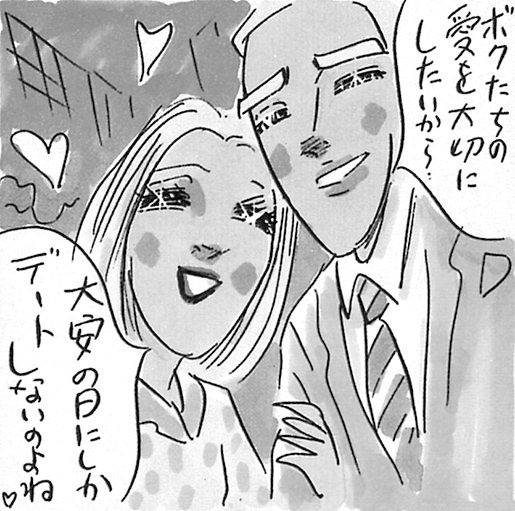 ボクたちの
愛を大切に
したいから…
大安の日にしか
デート
しないのよね♡